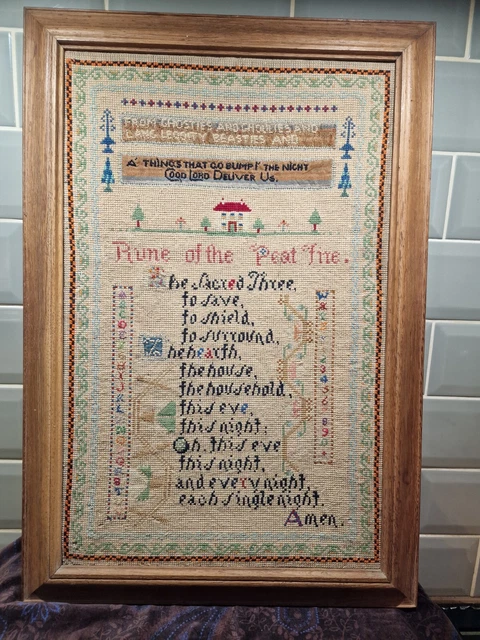 FROM GHOSTIES AND GHOULIES AND
LANG LEGGETY BEASTIES AND
A' THINGS THAT GO BUMP I' THE NIGHT
GOOD LORD DELIVER US.
Rune of the Peat Fire.
The Sacred Three,
to save,
to shield,
to surround,
The hearth,
the house,
the household,
this eve,
this night,
Oh, this eve
this night,
and every night,
each single night.
Amen.